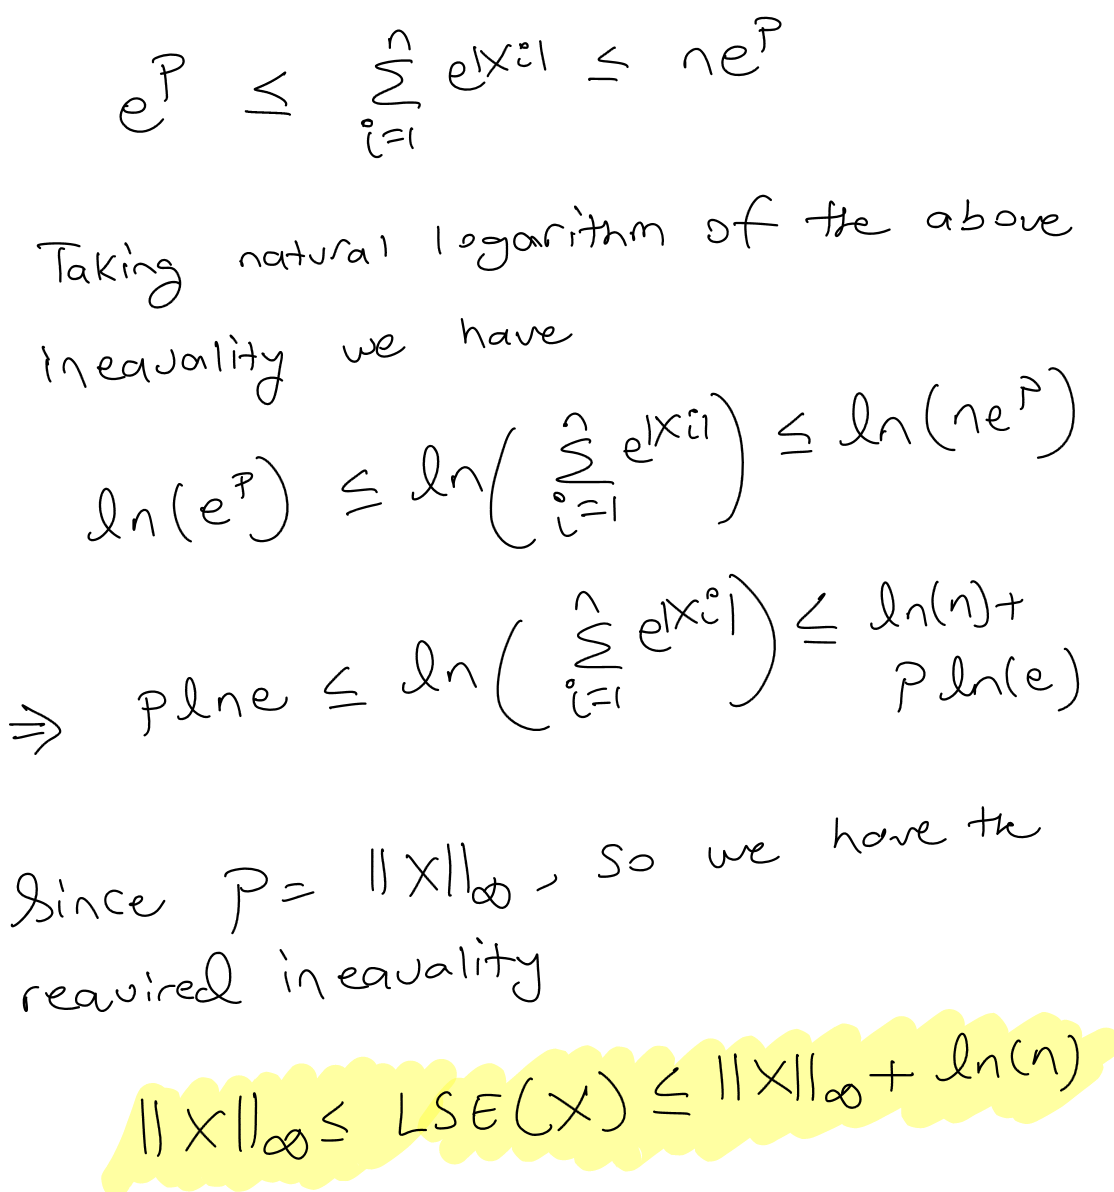 e^P ≤ \sum_{i=1}^{n} e^{|X_i|} ≤ ne^P
Taking natural logarithm of the above
inequality we have
ln(e^P) ≤ ln( \sum_{i=1}^{n} e^{|X_i|} ) ≤ ln(ne^P)
⇒ P ln e ≤ ln( \sum_{i=1}^{n} e^{|X_i|} ) ≤ ln(n)+
P ln(e)
Since P = ||X||_∞, so we have the
required inequality
||X||_∞ ≤ LSE(X) ≤ ||X||_∞ + ln(n)